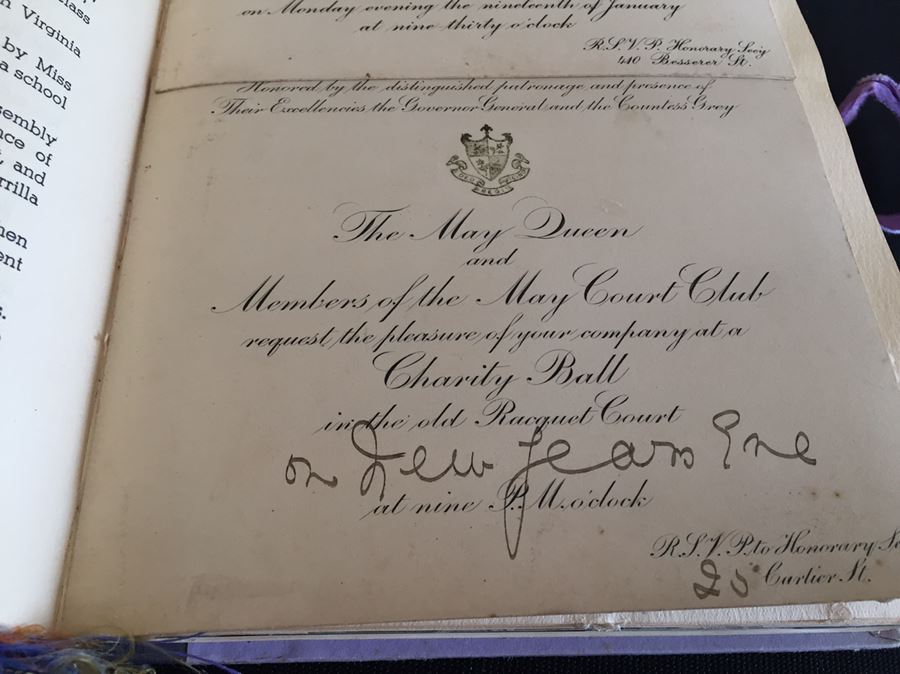 class
Virginia
by Miss
a school
sembly
nce of
, and
rrilla
hen
ent
s.
on Monday evening the nineteenth of January
at nine thirty o'clock
R.S.V.P. Honorary Secy
440 Besserer St.
Honored by the distinguished patronage and presence of
Their Excellencies the Governor General and the Countess Grey
The May Queen
and
Members of the May Court Club
request the pleasure of your company at a
Charity Ball
in the old Racquet Court
on New Years Eve
at nine P.M. o'clock
R.S.V.P. to Honorary Se
25 Cartier St.